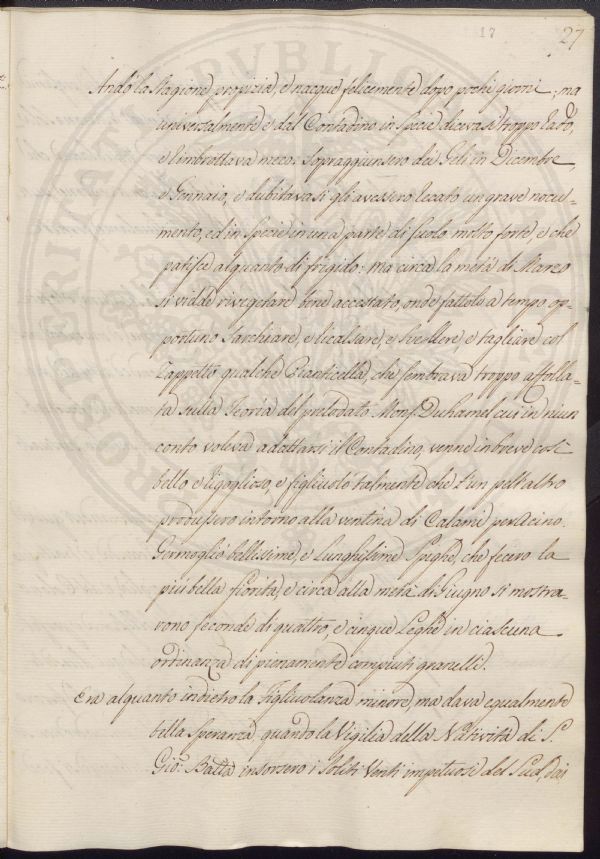 17 27
Andò la Stagione propizia, e nacque felicemente dopo pochi giorni; ma
universalmente e dal Contadino in specie dicevasi troppo rado,
e l'imbrottava meco. Sopraggiunsero dei Geli in Dicembre,
e Gennaio, e dubitavasi gli avessero recato un grave nocu-
mento, ed in specie in una parte di suolo molto forte, e che
patisce alquanto di frigido: ma circa la metà di Marzo
si vidde rivegetare bene accestato, onde fattolo a tempo op-
portuno sarchiare, e ricalzare, e svellere, e tagliare col
Zappetto qualche Pianticella, che sembrava troppo affolla-
ta sulla Teoria del prelodato Mons. Duhamel cui in niun
conto voleva adattarsi il Contadino, venne in breve così
bello e rigoglioso, e figliuolò talmente che l'un pell'altro
produssero intorno alla ventina di Calami per acino.
Germogliò bellissime, e lunghissime Spighe, che fecero la
più bella fiorita, e circa alla metà di Giugno si mostra-
vono feconde di quattro, e cinque Leghe in ciascuna
ordinanza di pienamente compiuti granelli.
Era alquanto indietro la Figliuolanza minore, ma dava egualmente
bella Speranza, quando la Vigilia della Natività di S.
Gio: Batta insorsero i soliti Venti impetuosi del Sud, dai
PVBLICAE PROSPERITATI